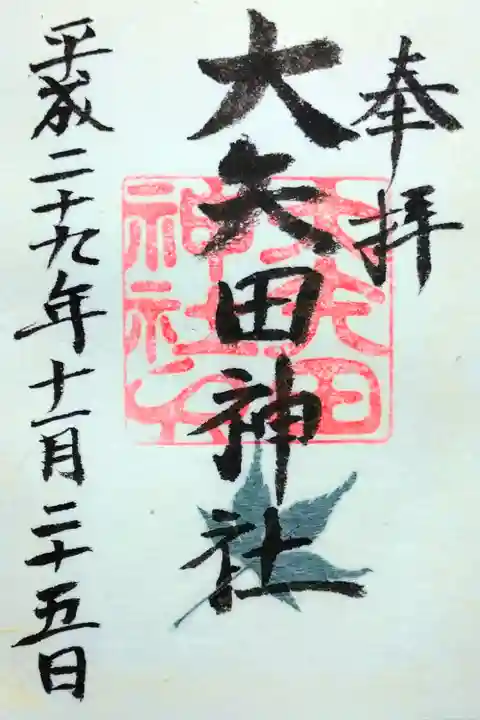 奉拝
大矢田神社
平成二十九年十一月二十五日
大矢田
神社